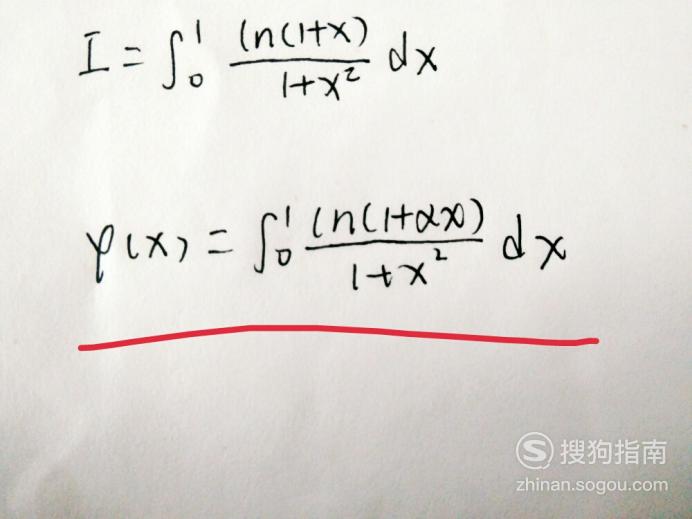 I = ∫₀¹ ln(1+x)/(1+x²) dx
φ(x) = ∫₀¹ ln(1+αx)/(1+x²) dx
S 搜狗指南
zhinan.sogou.com